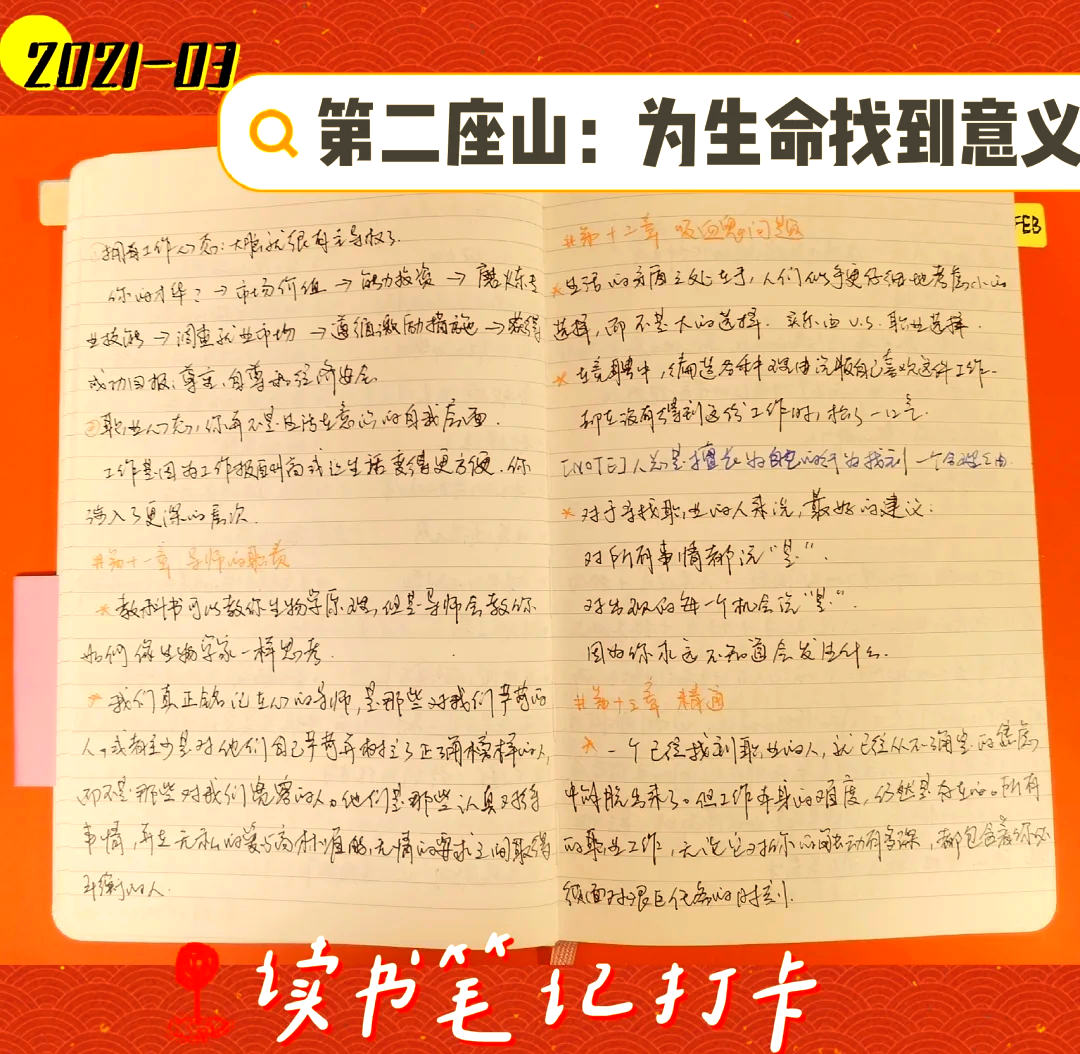 2021-03
第二座山：为生命找到意义
FEB
①拥有工作心态：大脑就很有主导权了.
你的才华？→市场价值→能力投资→磨炼专
业技能→调查就业市场→遵循激励措施→获得
成功回报：尊重、自尊和经济安全
②职业心态，你再不是生活在意识的自我层面.
工作是因为工作报酬让生活变得更方便.你
深入了更深的层次.
#第十一章 导师的职责
*教科书可以教你生物学原理,但是导师会教你
如何像生物学家一样思考.
*我们真正铭记在心的导师,是那些对我们严苛的
人,或者至少是对他们自己严苛并树立了正确榜样的人,
而不是那些对我们宽容的人。他们是那些认真对待
事情,再在无私的爱与高标准的,无情的要求之间取得
平衡的人.
#第十二章 吸血鬼问题
*生活的矛盾之处在于,人们似乎更仔细地考虑小的
选择,而不是大的选择. 买东西 V.S. 职业选择.
*在竞聘中,编造各种理由说服自己喜欢这件工作.
却在没有得到这份工作时,松了一口气.
[NOTE]人总是擅长为自己的行为找到一个合理理由.
*对于寻找职业的人来说,最好的建议：
对所有事情都说“是”.
对出现的每一个机会说“是”.
因为你永远不知道会发生什么.
#第十三章 精通
*一个已经找到职业的人,就已经从不确定的焦虑
中解脱出来了。但工作本身的难度,仍然是存在的。所有
的职业工作,无论它对你的触动有多深,都包含着你必
须面对艰巨任务的时刻.
读书笔记打卡